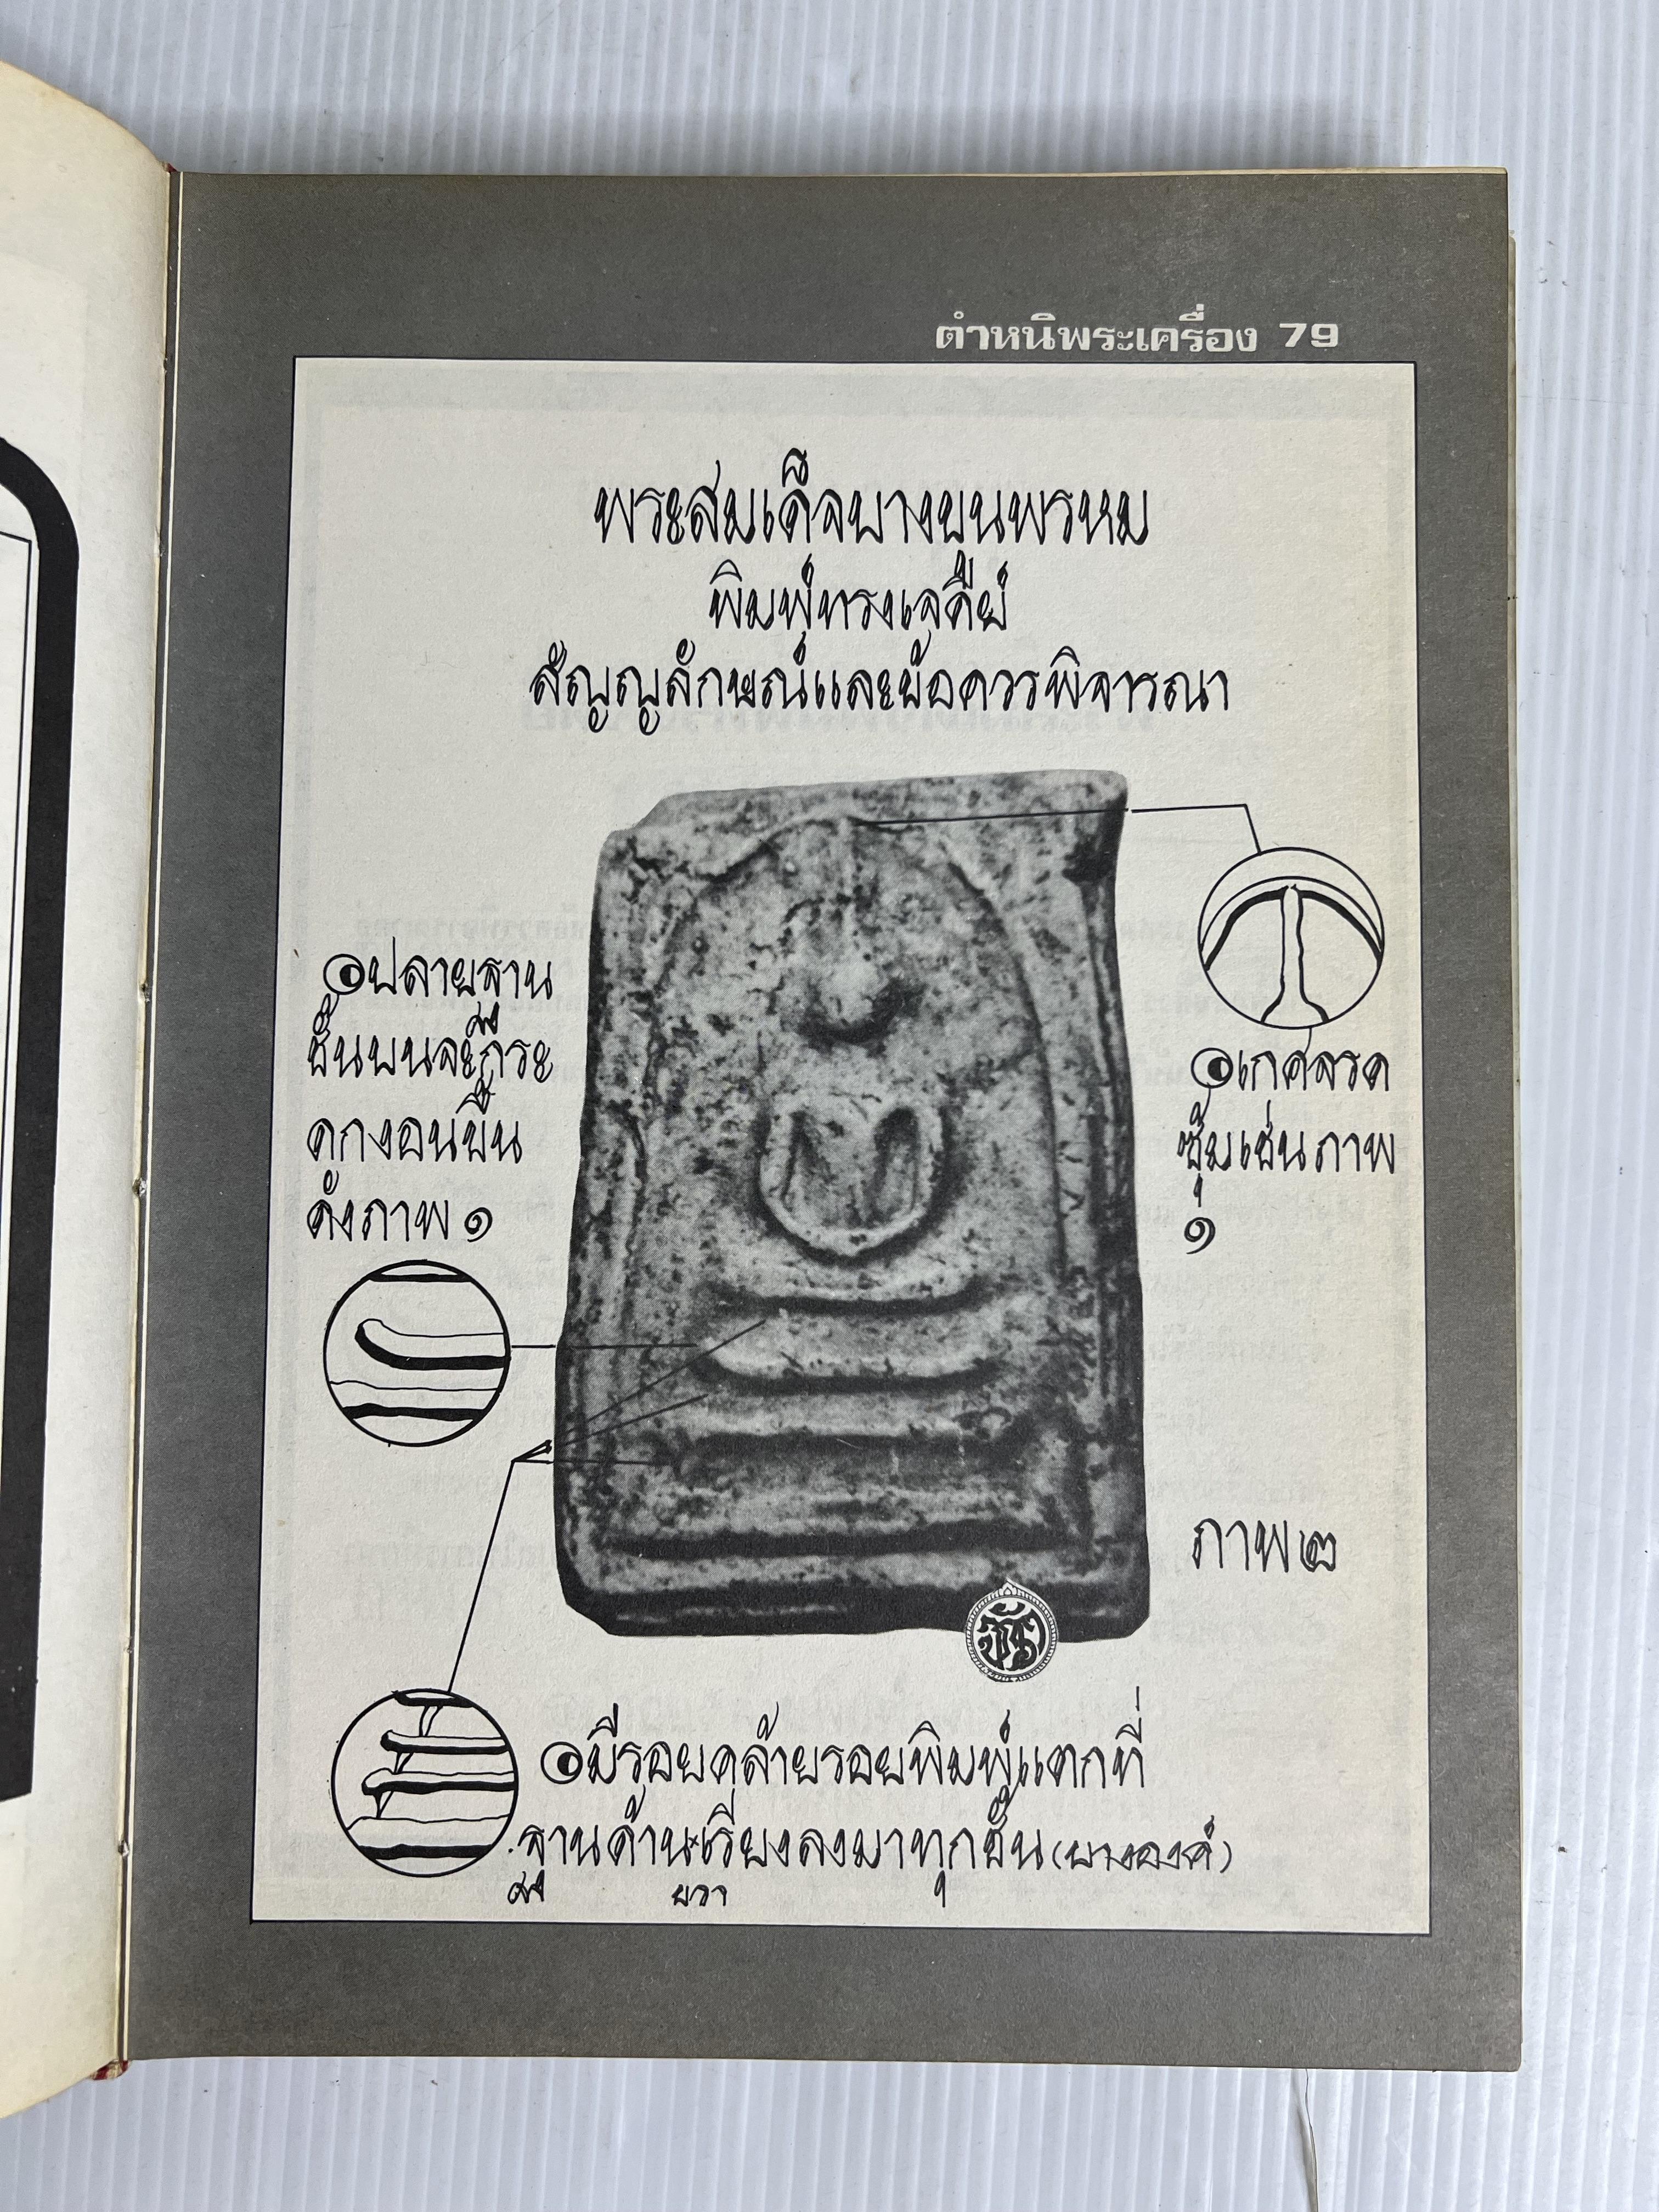 ตำหนิพระเครื่อง 79
พระสมเด็จบางขุนพรหม
พิมพ์ทรงเจดีย์
สัญญลักษณ์และข้อควรพิจารณา
ปลายฐาน
ชั้นบนจะ
ดูกงอนขึ้น
ดังภาพ ๑
เกศจรด
ซุ้มเช่นภาพ
๑
ภาพ ๒
มีรอยคล้ายรอยพิมพ์แตกที่
ฐานด้าน เรียงลงมาทุกชั้น (บางองค์)
ขวา